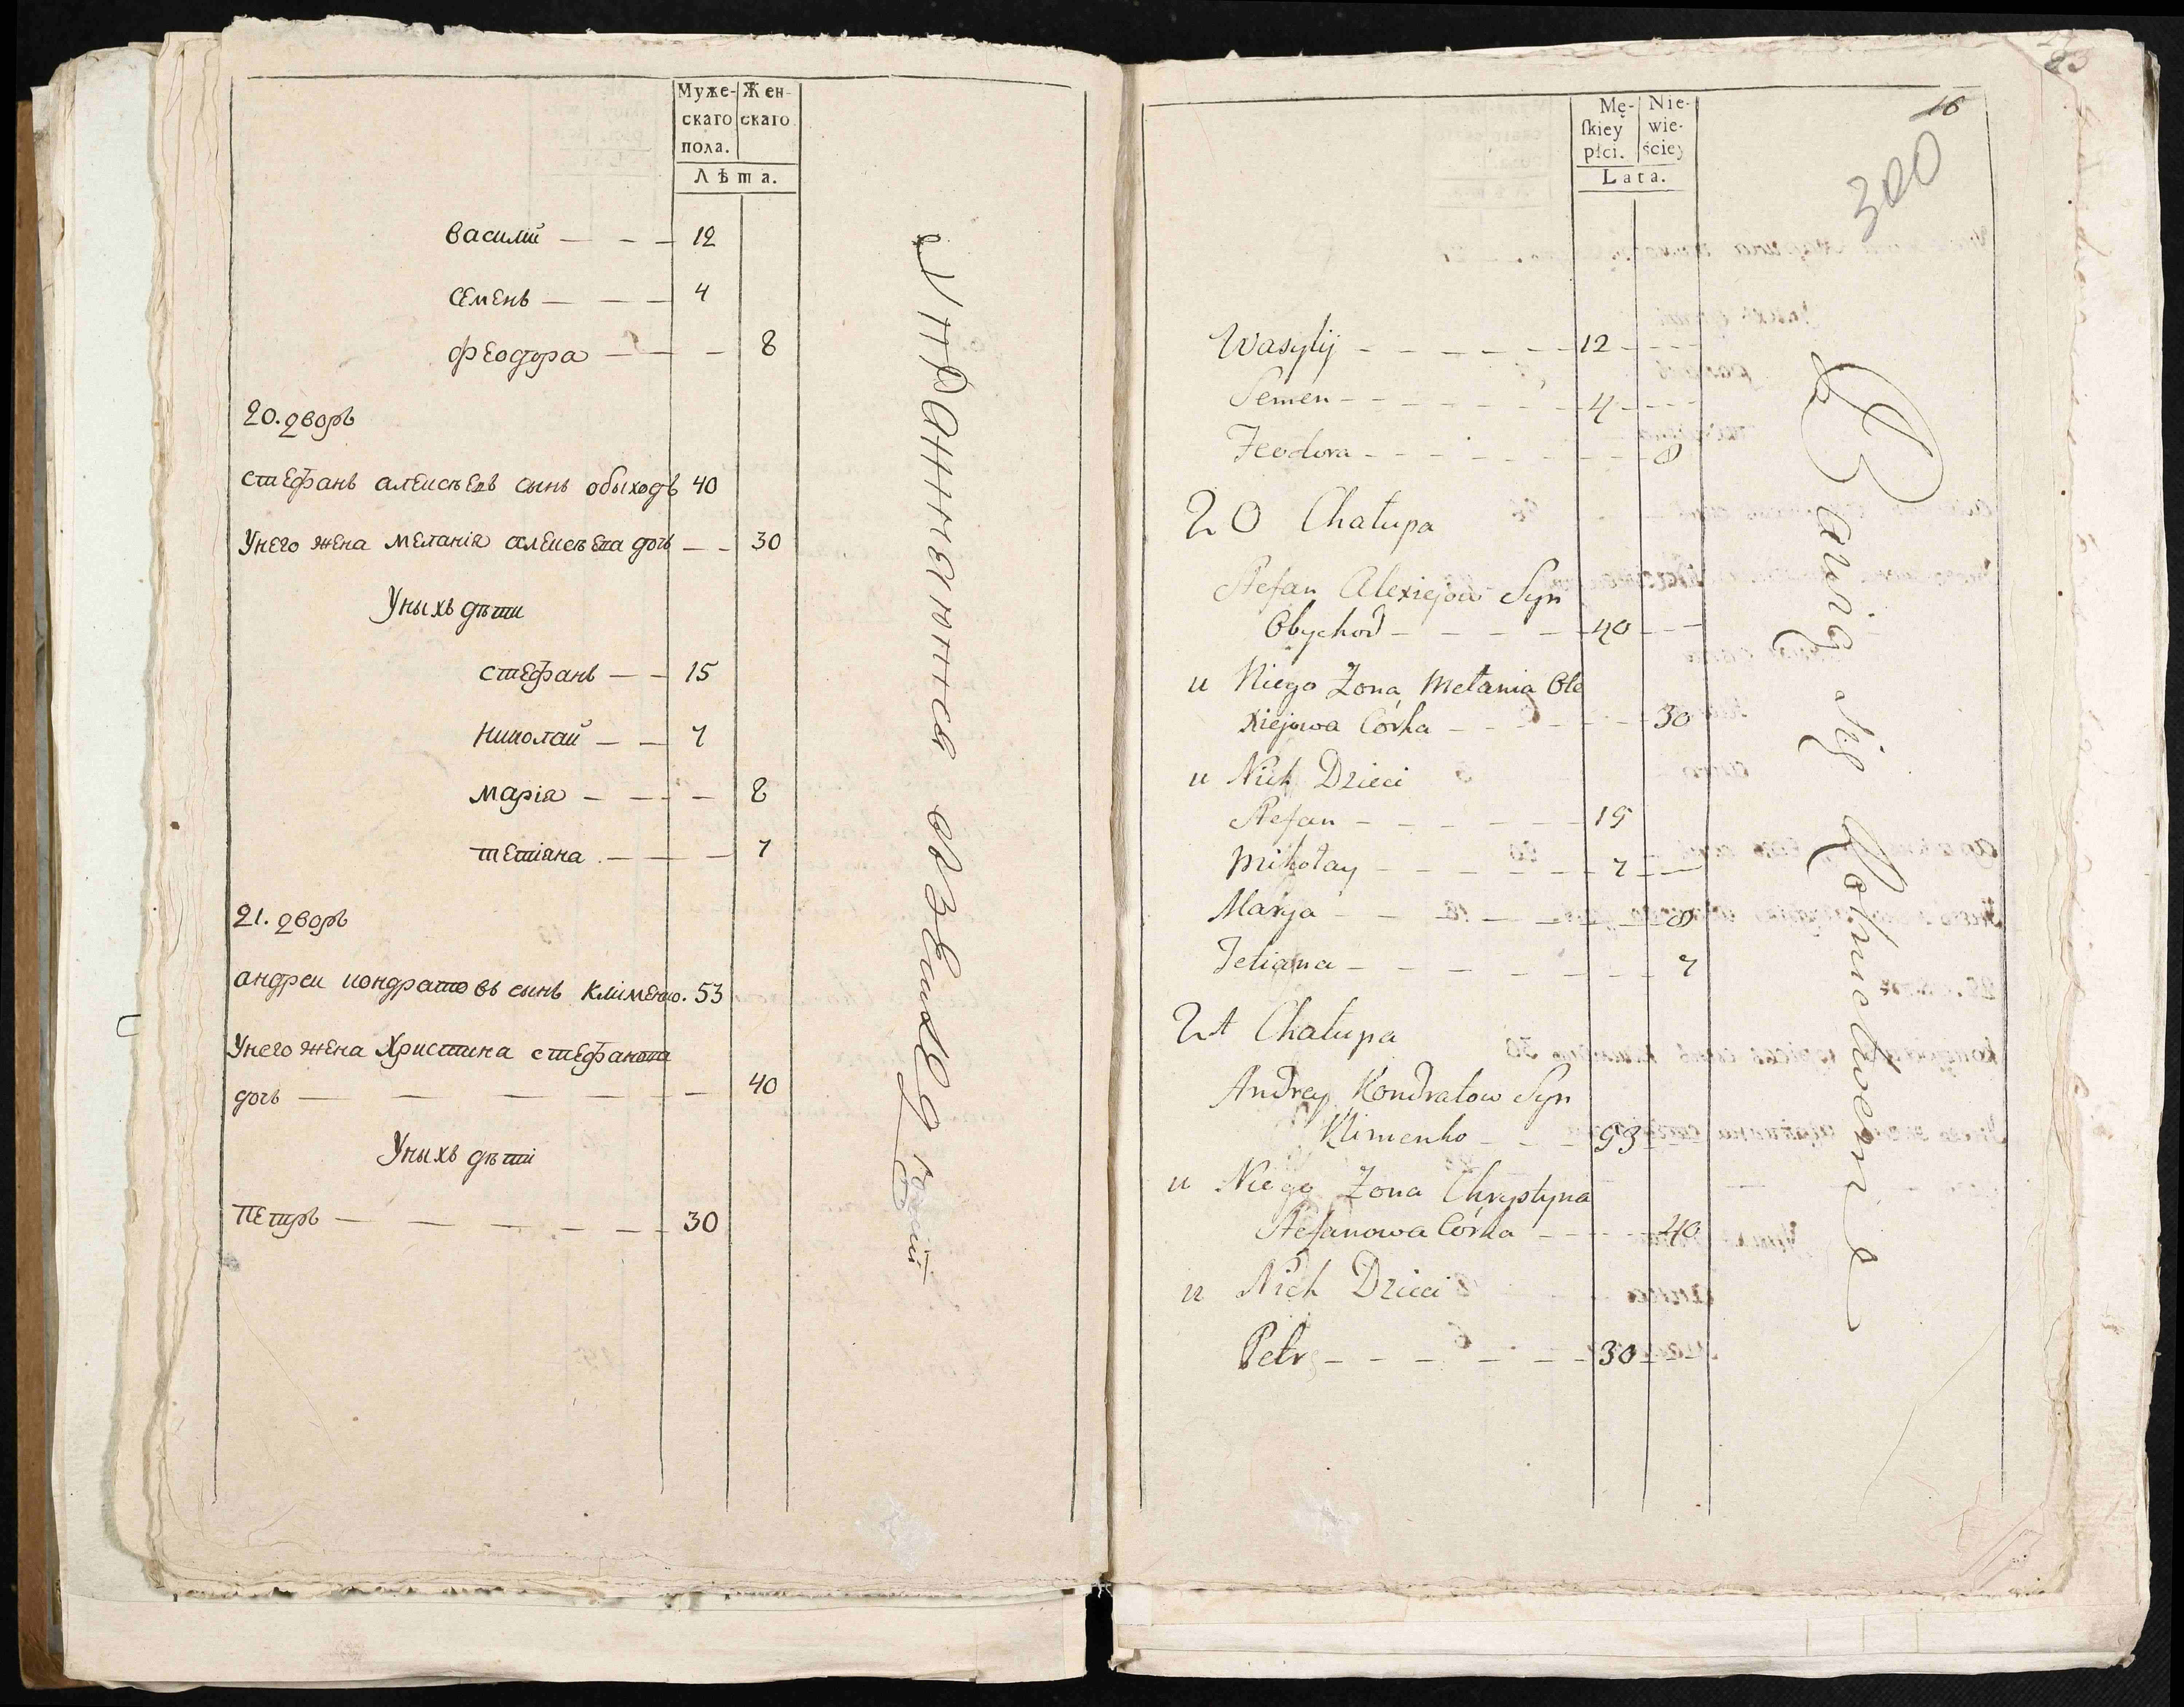 Муже- Жен-
скаго скаго
пола.
Лѣта.
василій — — — 12
семенъ — — — 4
феодора — — — 8
20. дворъ
стефанъ алексѣевъ сынъ обыходъ 40
Унего жена меланія алексѣева дочь — — 30
Уныхъ дѣти
стефанъ — — 15
николай — — 7
марія — — — 8
тетіана — — — 7
21. дворъ
андреи кондратовъ сынъ кліменко. 53
Унего жена Христина стефанова
дочь — — — — — 40
Уныхъ дѣті
Петръ — — — — — — 30
83
16
300
Mę- Nie-
ſkiey wie-
płci. ściey
Lata.
Wasylij - - - - - - 12 - - -
Semen - - - - - - - 4 - - -
Feodora - - - - - - - - 8
20 Chałupa
Stefan Alexiejow Syn
Obychod - - - - - 40 - - -
u Niego Żona Mełania Ole
xiejowa Córka - - - - - 30
u Nich Dzieci
Stefan - - - - - - 15
Mikołay - - - - - - 7 - - -
Marya - - - - - - - 8
Tetiana - - - - - - - 7
21 Chałupa
Andrey Kondratow Syn
Klimenko - - - 53 - - -
u Niego Żona Chrystyna
Stefanowa Córka - - - - 40
u Nich Dzieci
Petr - - - - - - 30 - -
Bawią się Rolnictwem